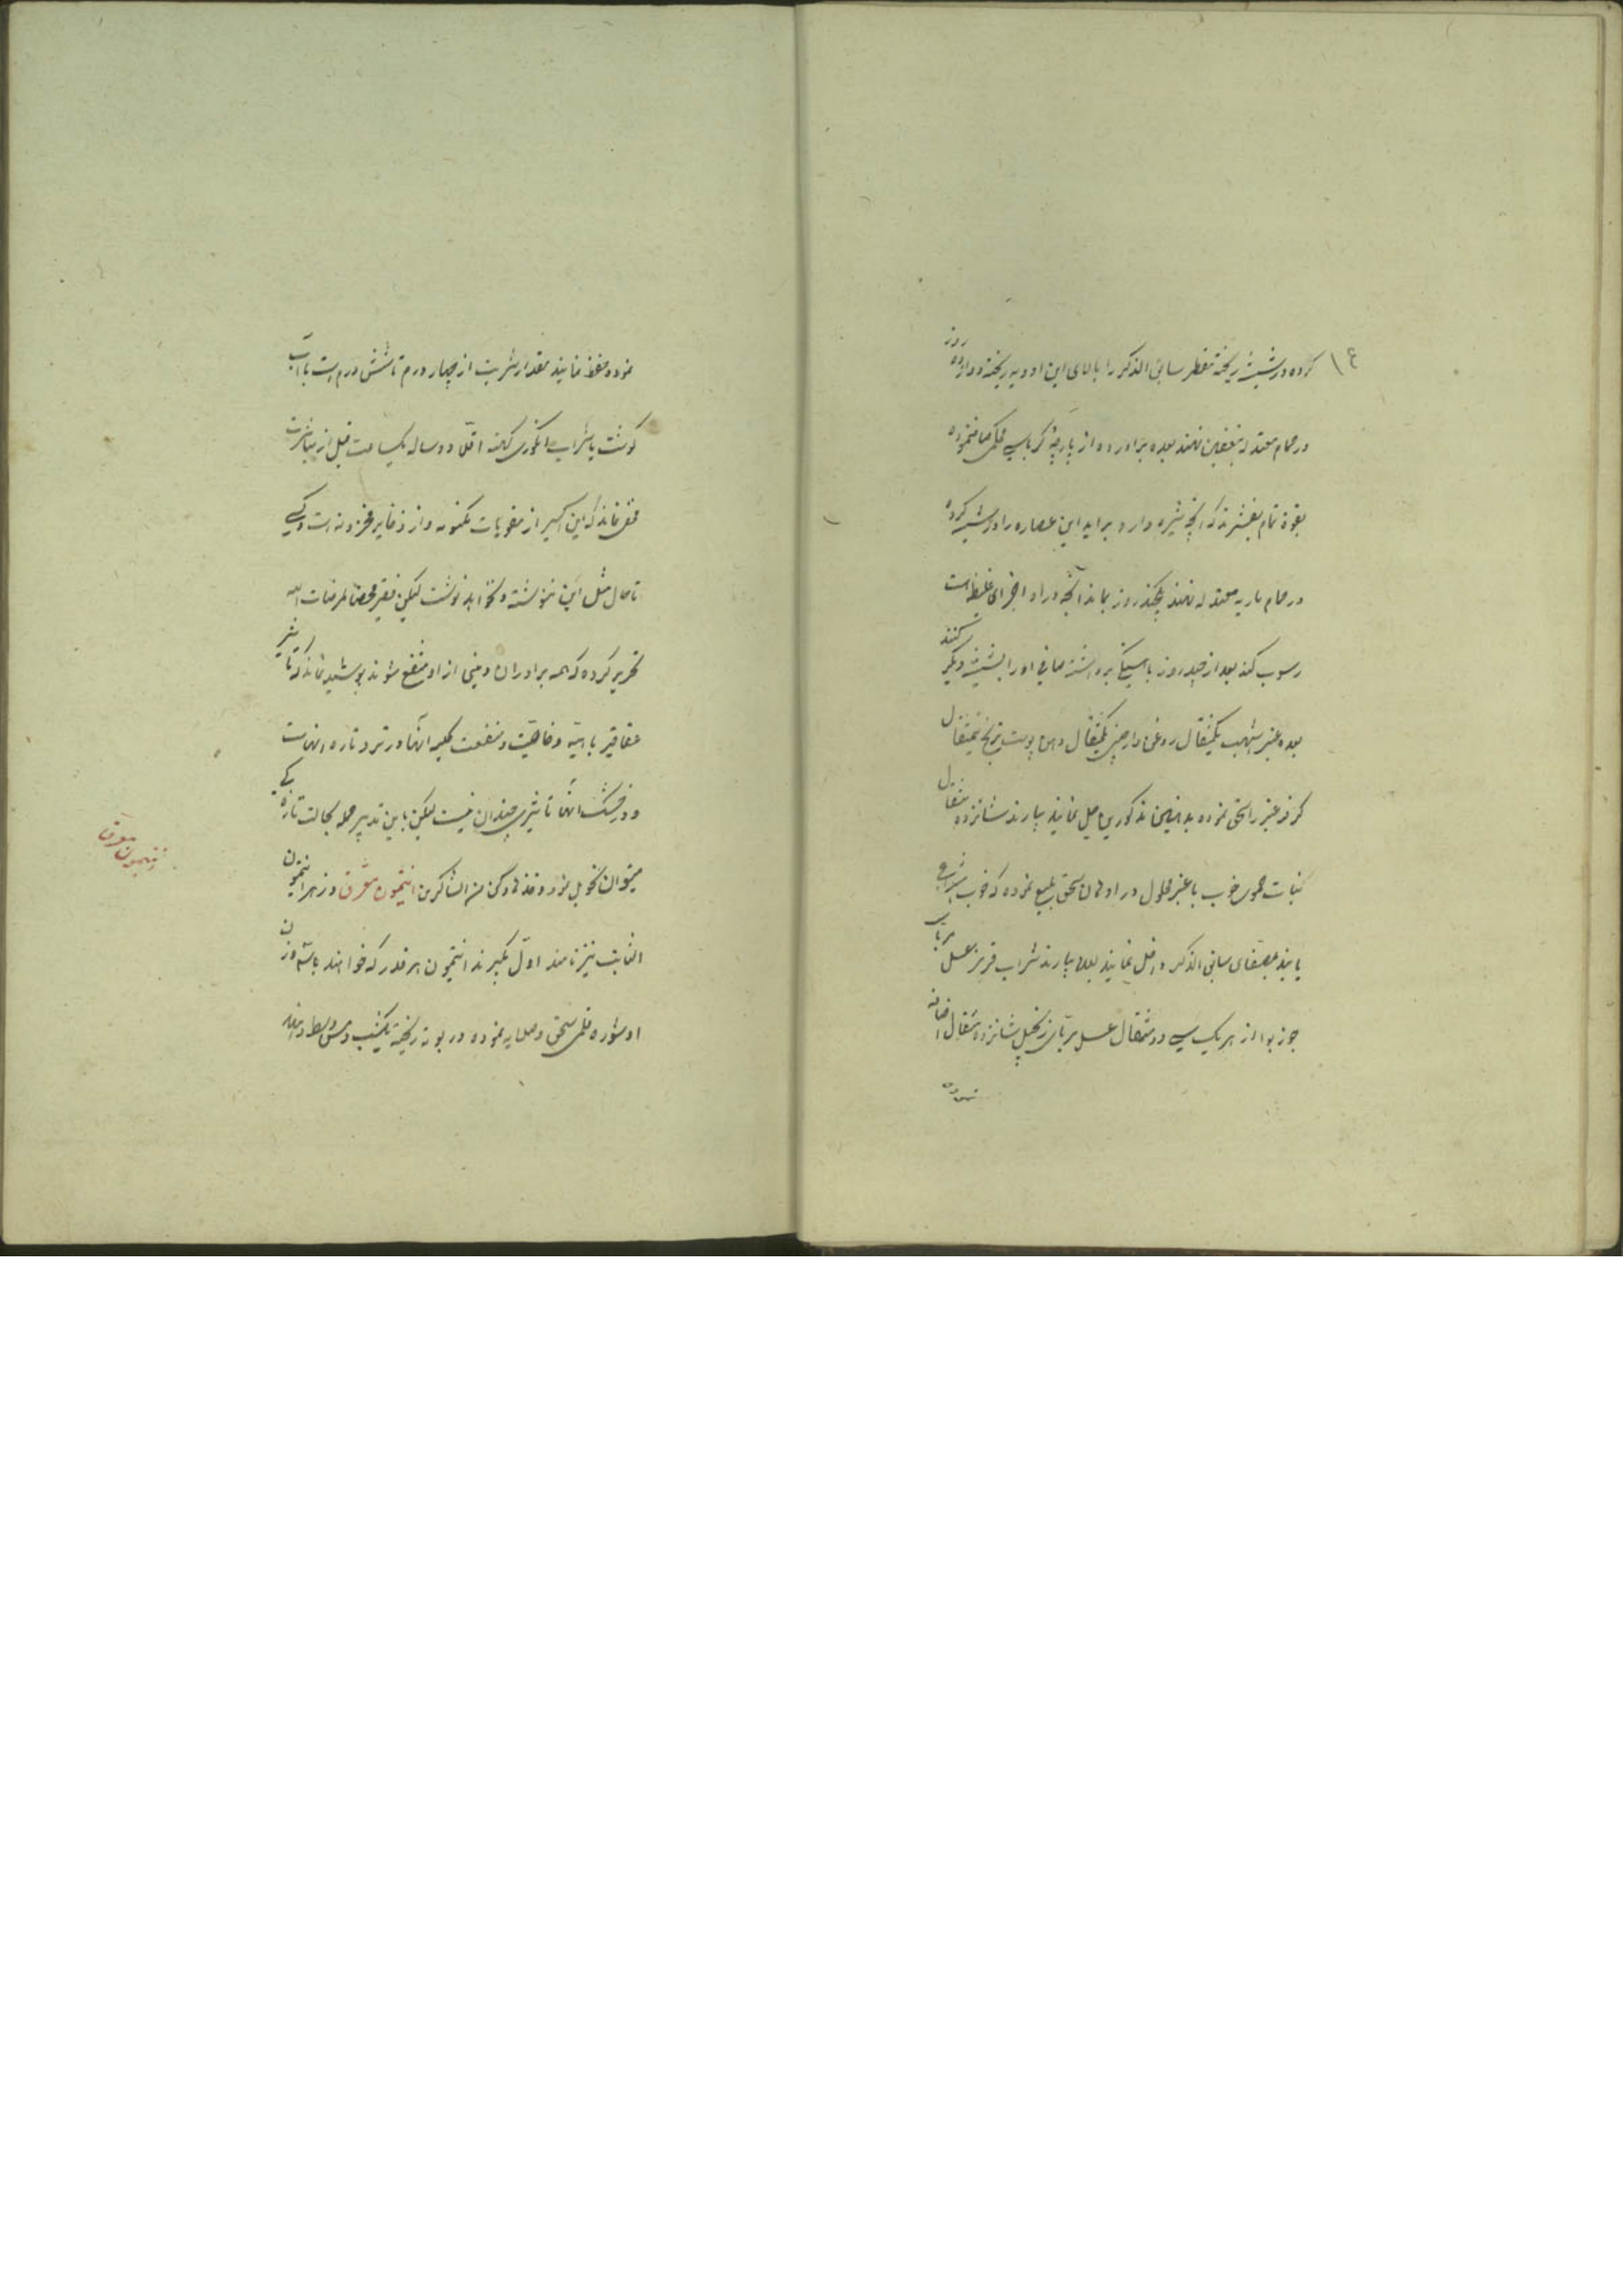 ۱۴
کرده در شیشه ریخته مقطر سابق الذکر را بالای این ادویه ریخته دوازده روز
در حمام معتدله بتعفین نهند بعده برآورده از پارچه کرباسی محکم صاف نموده
بقوة تمام بفشرند که آنچه شیره دارد براید این عصاره را در شیشه کرده
در حمام ماریه معتدله نهند پنجروز بماند آنچه در او اجزای غلیظ است
رسوب کند بعد از چند روز باهستگی برداشته صافی او را بشیشه دیگر کنند
بعده عنبر اشهب یکمثقال روغن دارچینی یکمثقال دهن پوست ترنج نیمثقال
گرفته عنبر را سحق نموده بدهنین مذکورین حل نمایند بیارند شانزده مثقال
نبات مصری خوب با عنبر محلول در هاون سحق بلیغ نموده که خوب امتزاج
یابند بمصفای سابق الذکر داخل نمایند بعده بیارند شراب قرمز عسل مربای
جوز بوا از هر یک سی و دو مثقال عسل مربای زنجبیل شانزده مثقال اضافه
نموده
نموده حفظ نمایند مقدار شربت از چهار درم تا شش درم است با آب
گوشت یا شراب انگوری کهنه اقلا دو ساله یکساعت قبل از مباشرت
مخفی نماند که این اکسیر از مقویات مکنونه و از ذخایر مخزونه است و کسی
تا حال مثل این ننوشته و نخواهد نوشت لیکن فقیر محضا لمرضات الله
تحریر کرده که همه برادران دینی از او منتفع شوند پوشیده نماند که تأثیر
عقاقیر باهیه و خاصیت و منفعت کلیه آنها در تر و تازه آنهاست
و در خشک آنها تأثیری چندان نیست لیکن باین تدبیر جمله بحالت تازه‌گی
میتوان تحویل نمود و خذها و کن من الشاکرین انتیمون معرق و زهر انتیمون
الثابت نیز نامند اول بگیرند انتیمون هر قدر که خواهند با سه وزن
او شوره قلمی سحق و صلایه نموده در بوته ریخته یکشب در آتش وسط دهند
انتیمون معرق